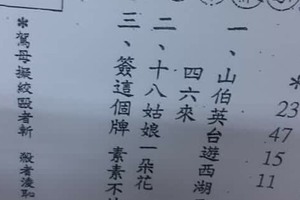 *
23
47
15
11
一、山伯英台遊西湖
四六來
二、十八姑娘一朵花
三、簽這個牌 素素不
*母擬絞毆者斬 殺者凌